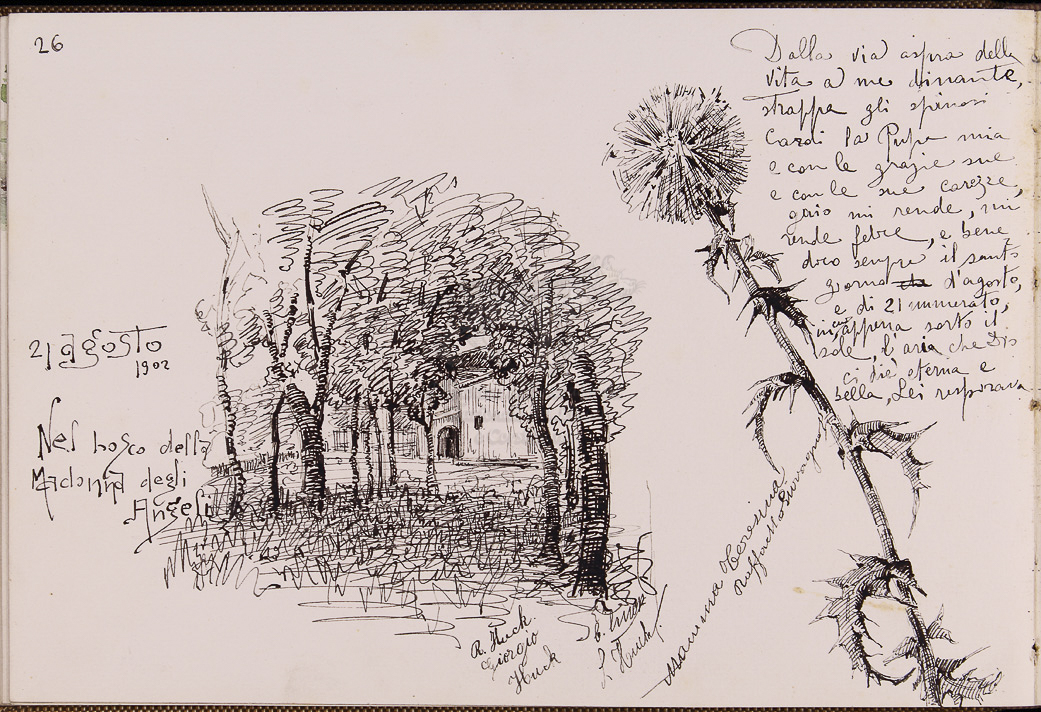 26
21 agosto
1902
Nel bosco della
Madonna degli
Angeli
Dalla via aspra della
vita a me dinante,
strappa gli spinosi
Cardi la Pupa mia
e con le grazie sue
e con le sue carezze,
gaio mi rende, mi
rende felice, e bene
dico sempre il santo
giorno d'agosto,
e di 21 numerato,
in cui appena sorto il
sole, l'aria che Dio
ci die' eterna e
bella, Lei respirava
R. Huck
Giorgio
Huck
L. Huck
Mamma Teresina
Raffaello